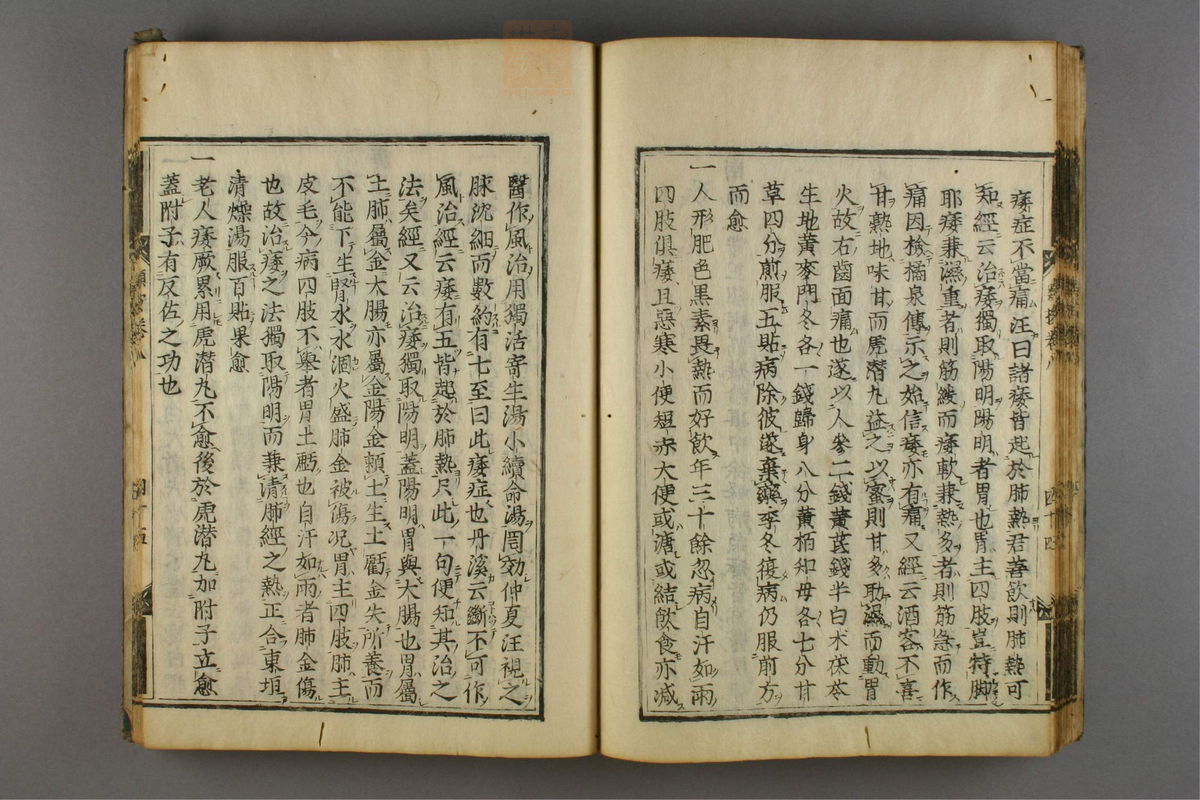 痿症不當痛汪曰諸痿皆起於肺熱君善飲則肺熱可
知經云治痿獨取陽明陽明者胃也胃主四肢豈特脚
耶痿兼濕重者則筋緩而痿軟兼熱多者則筋急而作
痛因檢橘泉傳示之始信痿亦有痛又經云酒客不喜
甘熟地味甘而虎潜丸益之以蜜則甘多助濕而動胃
火故右齒面痛也遂以人參二錢黄芪錢半白朮茯苓
生地黄麥門冬各一錢歸身八分黄栢知母各七分甘
草四分煎服五貼病除彼遂棄藥季冬復病仍服前方
而愈
一人形肥色黒素畏熱而好飲年三十餘忽病自汗如雨
四肢俱痿且惡寒小便短赤大便或溏或結飲食亦减
四十四
醫作風治用獨活寄生湯小續命湯罔効仲夏汪視之
脉沈細而數約有七至曰此痿症也丹溪云斷不可作
風治經云痿有五皆起於肺熱只此一句便知其治之
法矣經又云治痿獨取陽明蓋陽明胃與大腸也胃屬
土肺屬金大腸亦屬金陽金頼土生土虧金失所養而
不能下生腎水水涸火盛肺金被傷况胃主四肢肺主
皮毛今病四肢不擧者胃土虧也自汗如雨者肺金傷
也故治痿之法獨取陽明而兼清肺經之熱正合東垣
清燥湯服百貼果愈
一老人痿厥累用虎潜丸不愈後於虎潜丸加附子立愈
蓋附子有反佐之功也